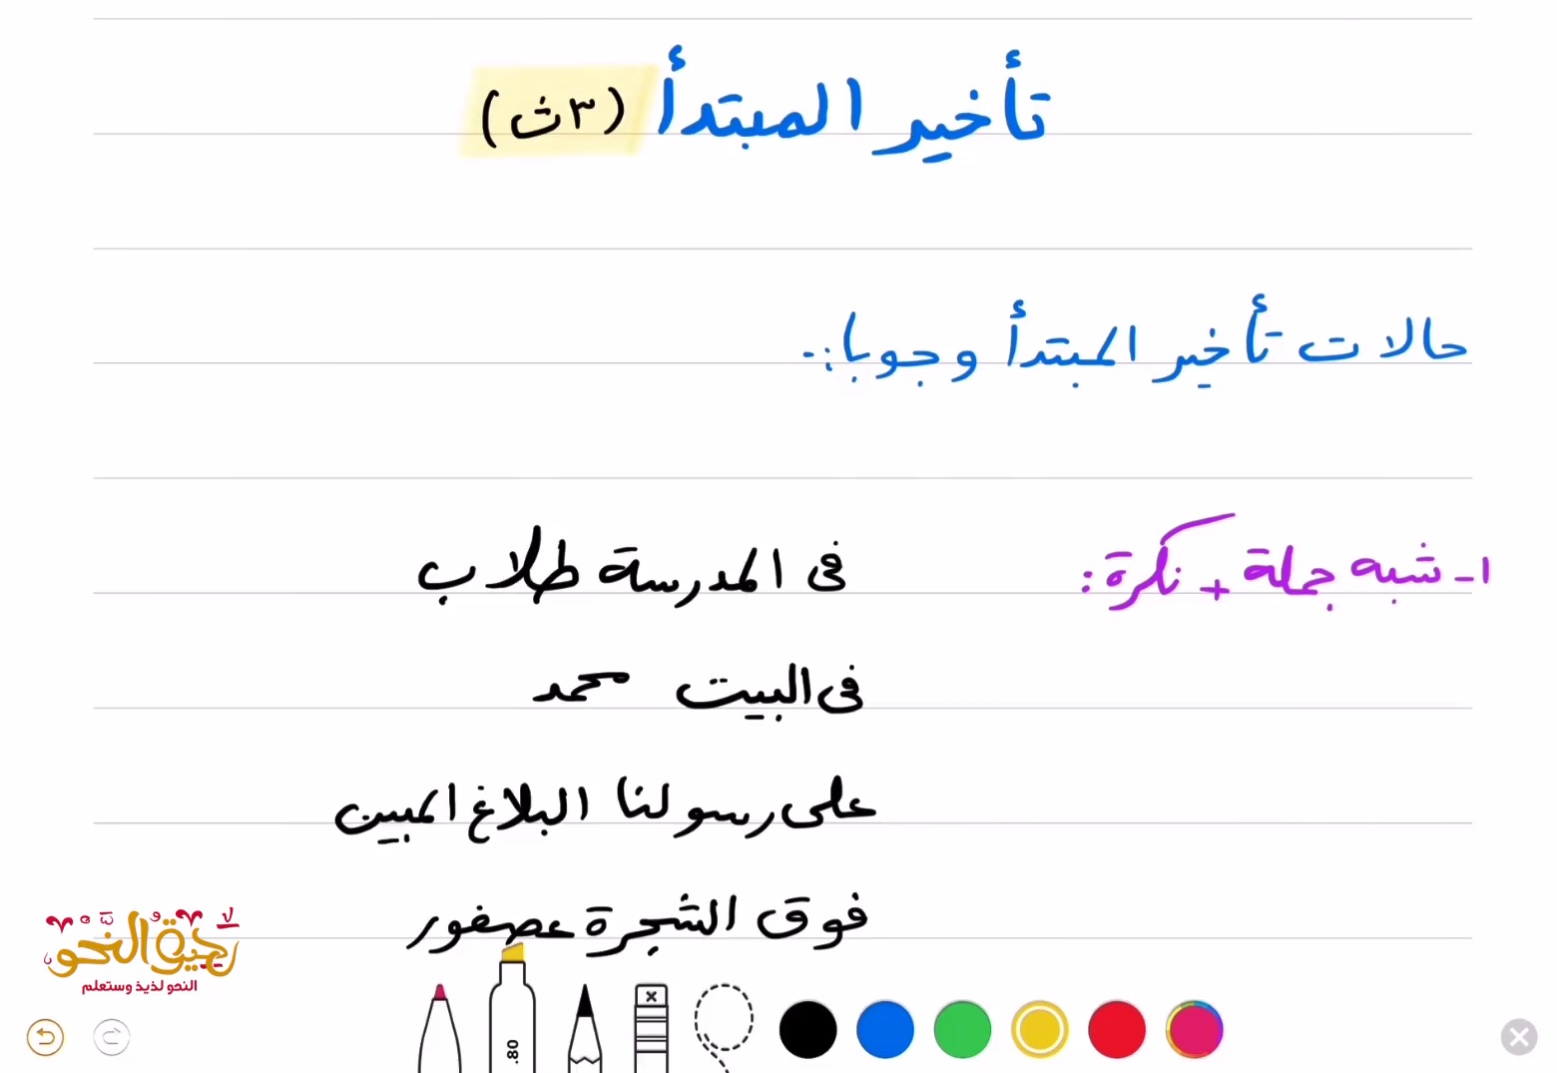 تأخير المبتدأ (٣ث)
حالات تأخير المبتدأ وجوبا:-
١- شبه جملة + نكرة: فى المدرسة طلاب
فى البيت محمد
على رسولنا البلاغ المبين
فوق الشجرة عصفور
رحيق النحو
النحو لذيذ وستعلم
.80